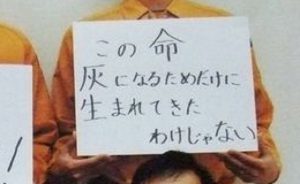 この命
灰になるためだけに
生まれてきた
わけじゃない